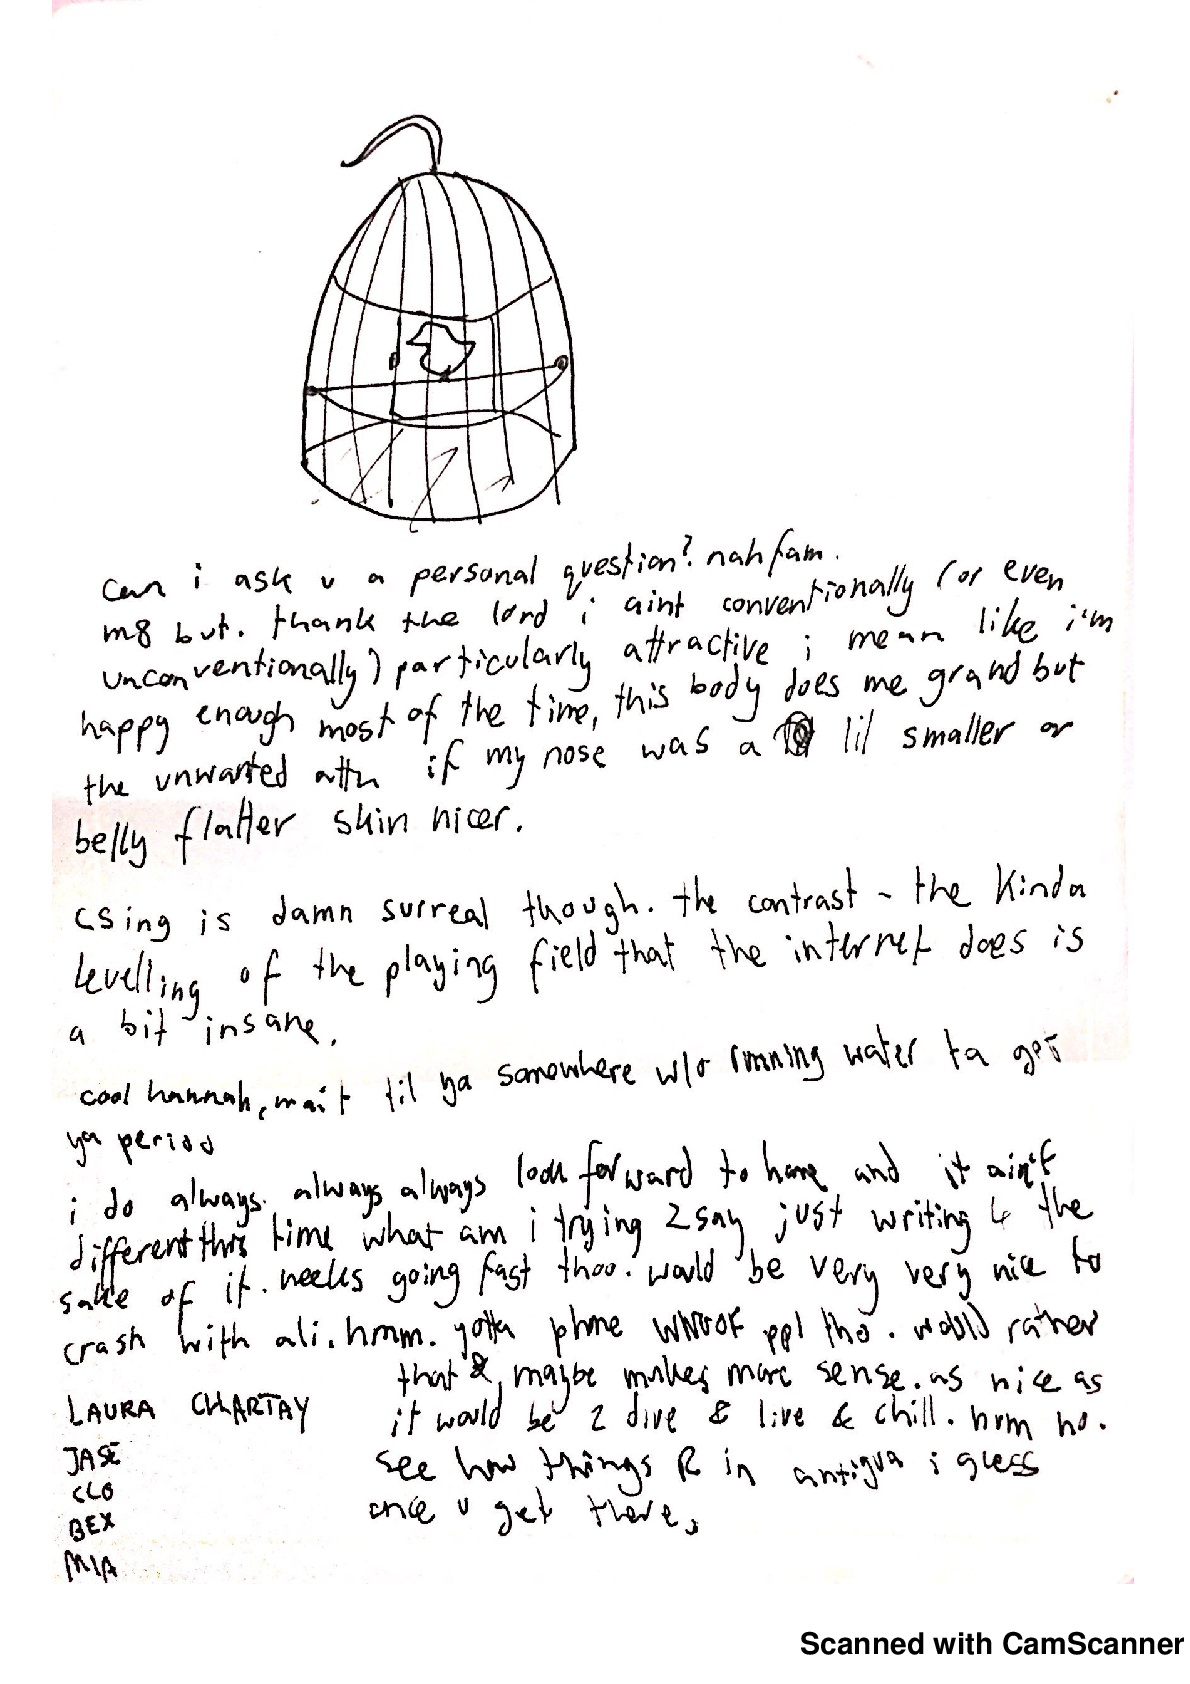 can i ask u a personal question? nah fam.
m8 but. thank the lord i aint conventionally (or even
unconventionally) particularly attractive i mean like i'm
happy enough most of the time, this body does me grand but
the unwanted attn if my nose was a lil smaller or
belly flatter skin nicer.
CSing is damn surreal though. the contrast - the kinda
levelling of the playing field that the internet does is
a bit insane.
cool hannah, wait til ya somewhere w/o running water ta get
ya period
i do always. always always look forward to home and it ain't
different this time what am i trying 2 say just writing 4 the
sake of it. weeks going fast thoo. would be very very nice to
crash with ali. hmm. gotta phone WWOOF ppl tho. would rather
that &, maybe makes more sense. as nice as
it would be 2 dive & live & chill. hrm no.
see how things R in antigua i guess
once u get there,
LAURA CHARTAY
JASE
CLO
BEX
MIA
Scanned with CamScanner